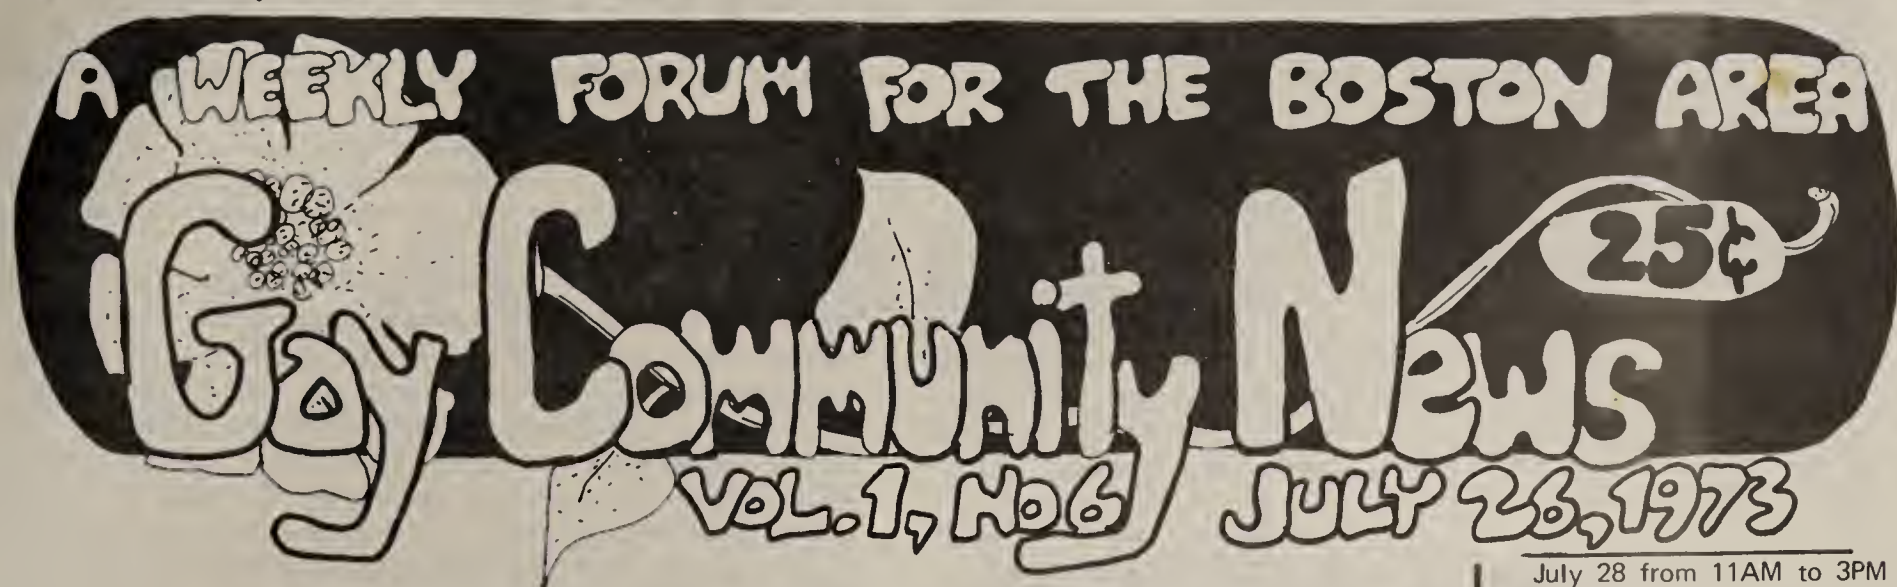 A WEEKLY FORUM FOR THE BOSTON AREA
Gay Community News
25¢
VOL. 1, No 6 JULY 26, 1973
July 28 from 11AM to 3PM